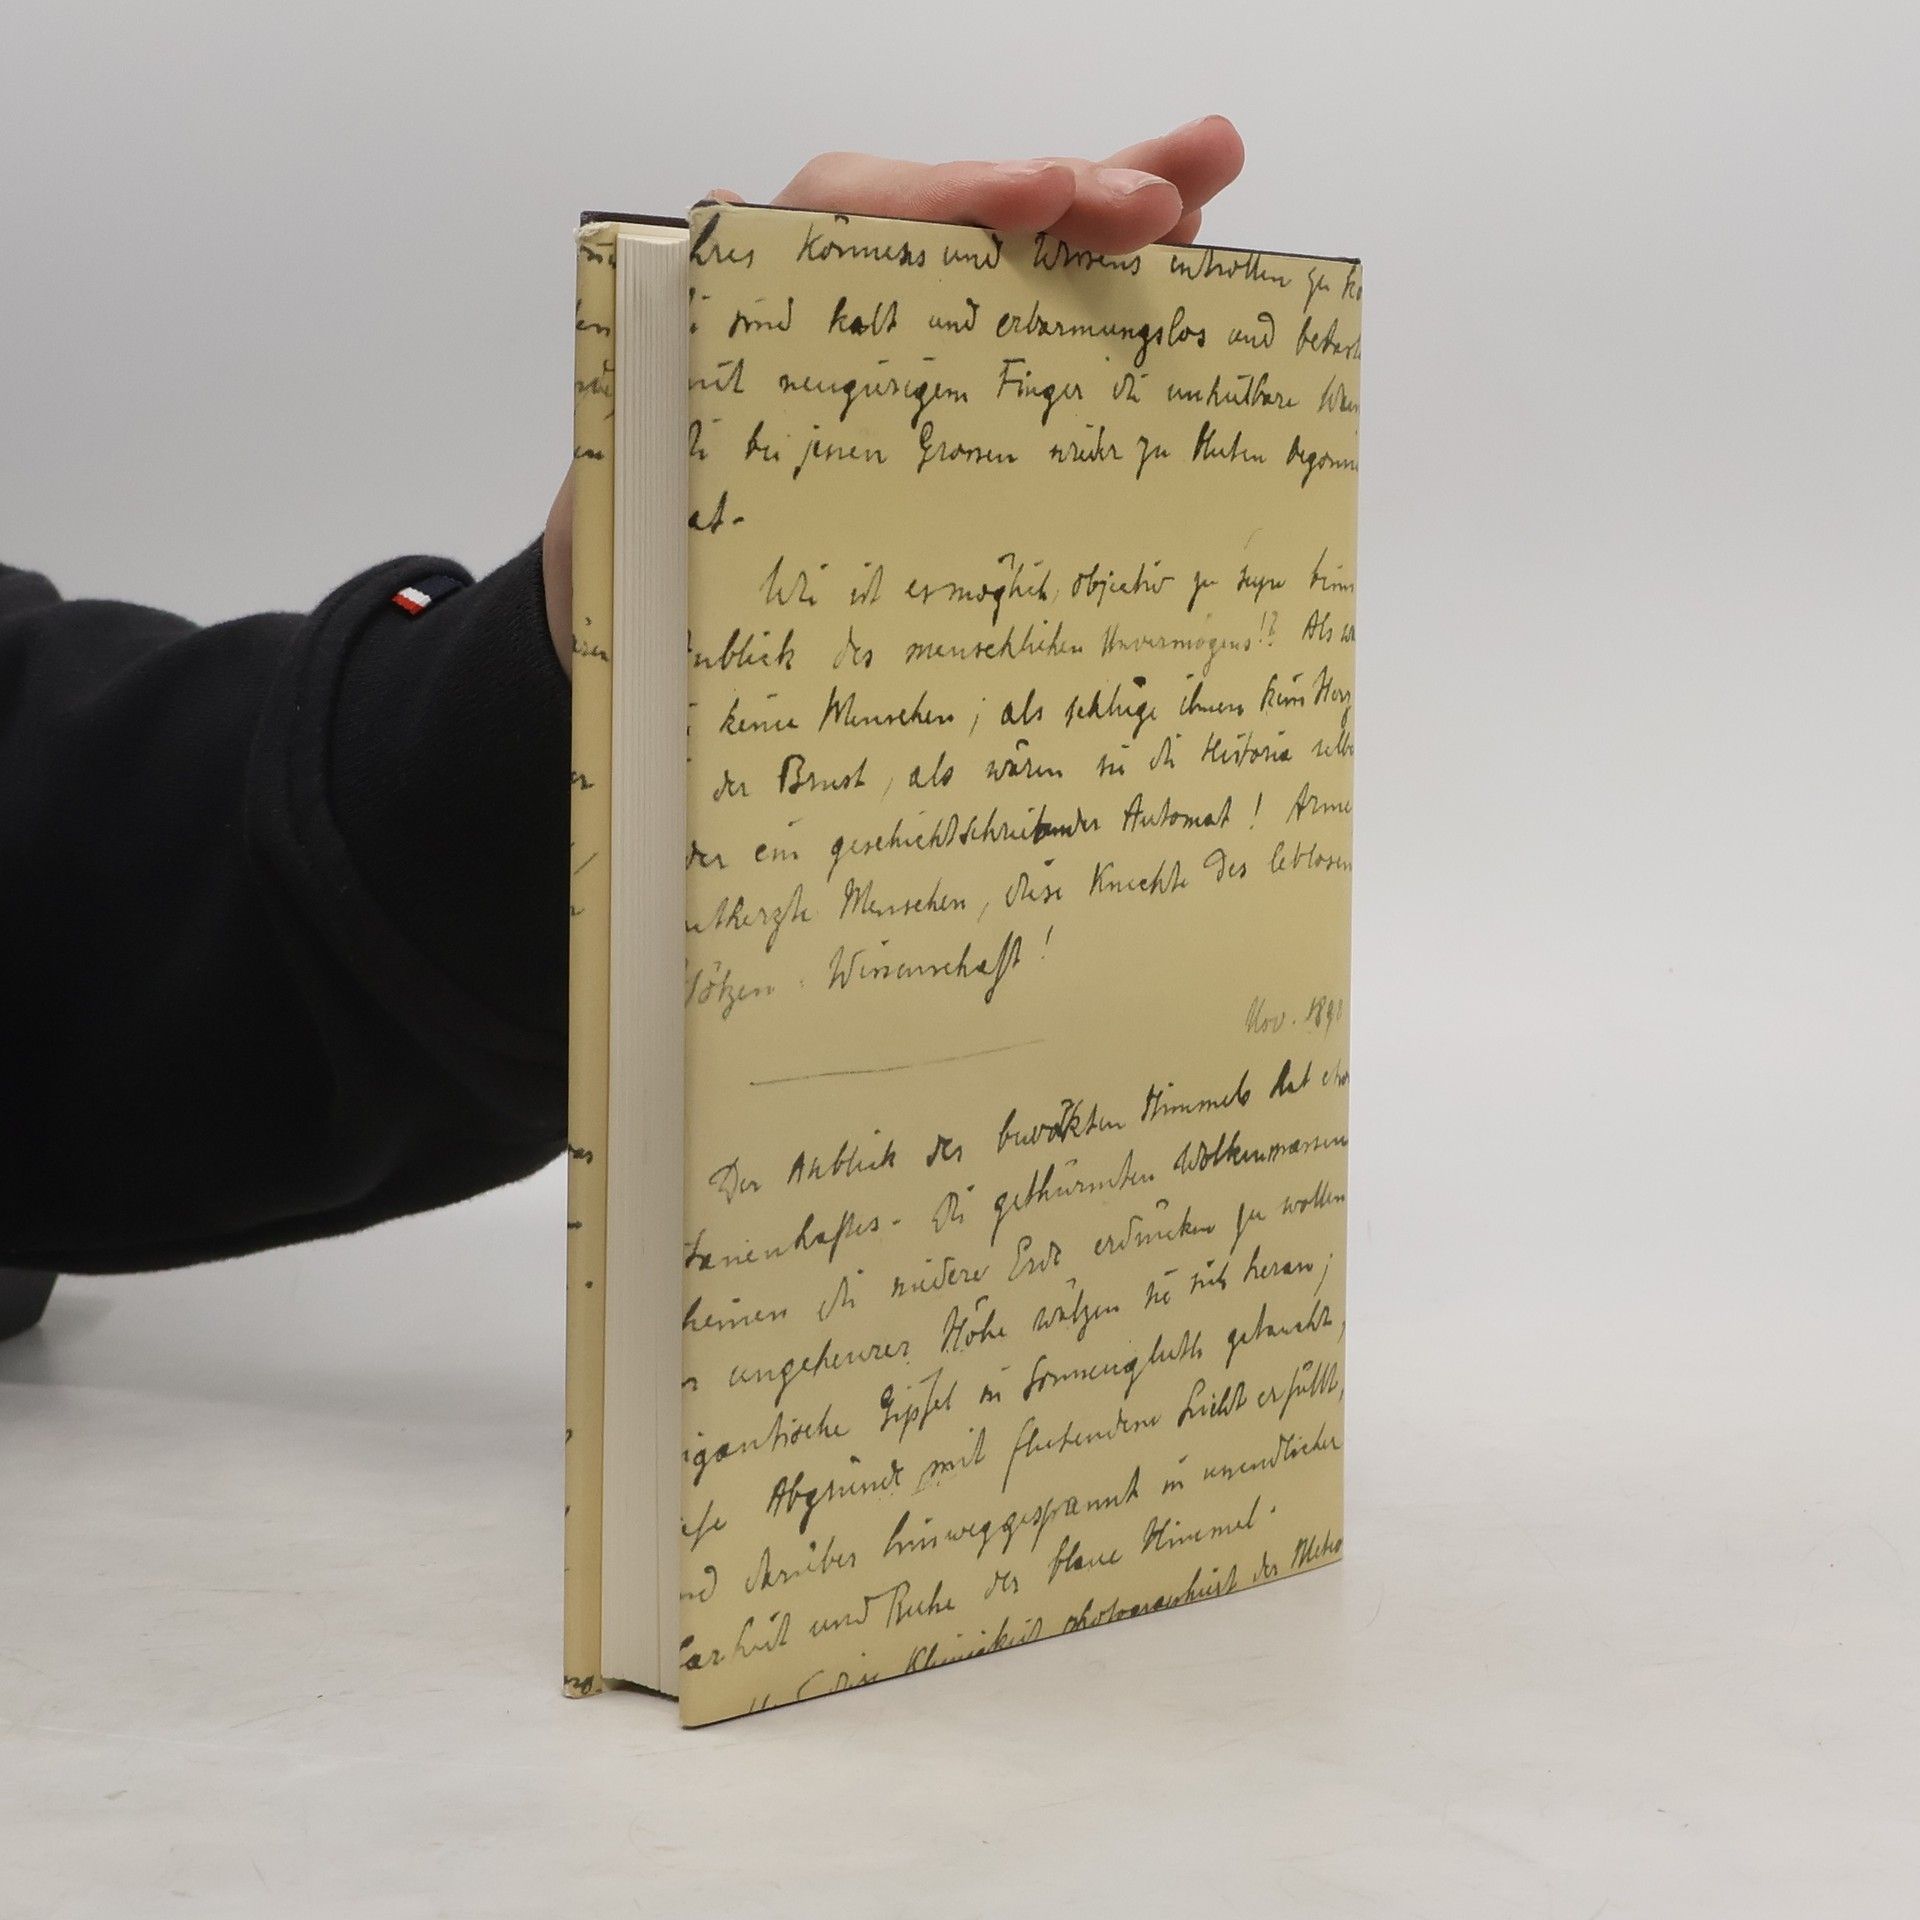 hres Könnens und Wissens entrollen zu kö
sind kalt und erbarmungslos und betast
mit neugierigem Finger die unheilbare Wun
bei jenen Grossen wieder zu bluten begonne
at.
Wie ist es möglich, objectiv zu sein beim
Anblick des menschlichen Unvermögens!? Als wä
keine Menschen; als schlüge ihnen kein Herz
der Brust, als wären sie die Historie selbe
der ein geschichtschreibender Automat! Arme
ntherzte Menschen, diese Knechte des leblosen
Götzen: Wissenschaft!
Nov. 189
Der Anblick des bewölkten Himmels hat etwa
tanenhaftes. Die gethürmten Wolkenmassen
heinen die niedere Erde erdrücken zu wollen
ungeheurer Höhe wälzen sie sich heran;
igantische Gipfel in Sonnengluth getaucht,
efe Abgründe mit fluthendem Licht erfüllt,
nd darüber hinweggespannt in unendlicher
arheit und Ruhe der blaue Himmel.
diese Kleinigkeit photographiert der Meteo